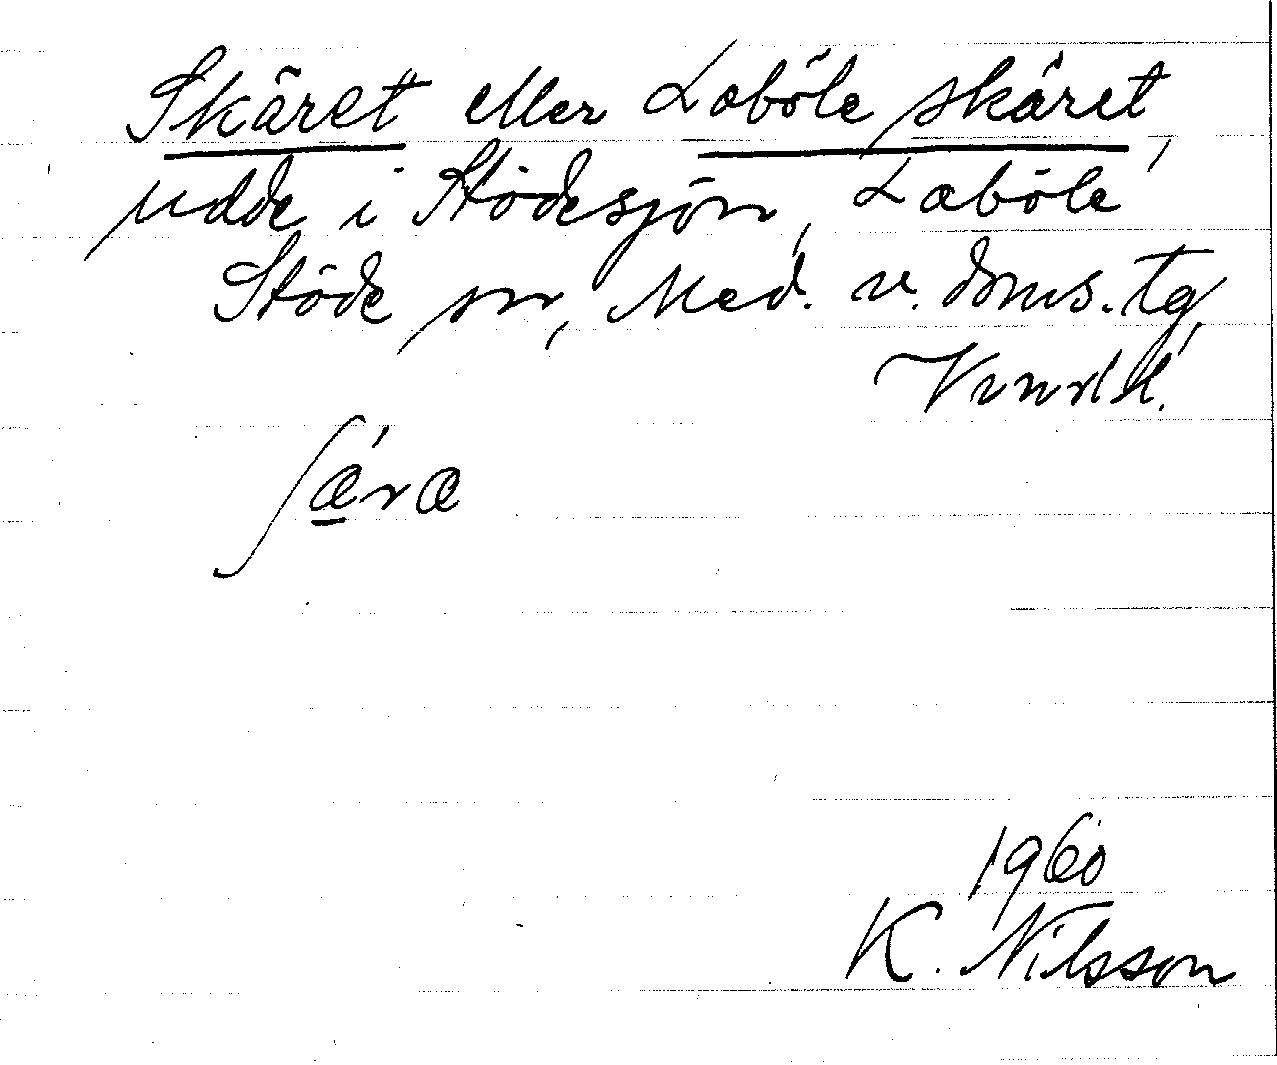 Skäret eller Laböle skäret,
udde i Stödesjön, Laböle
Stöde sn, Med. v. doms. tg,
Vnrld.
ʃǽ̲ra
1960
K. Nilsson